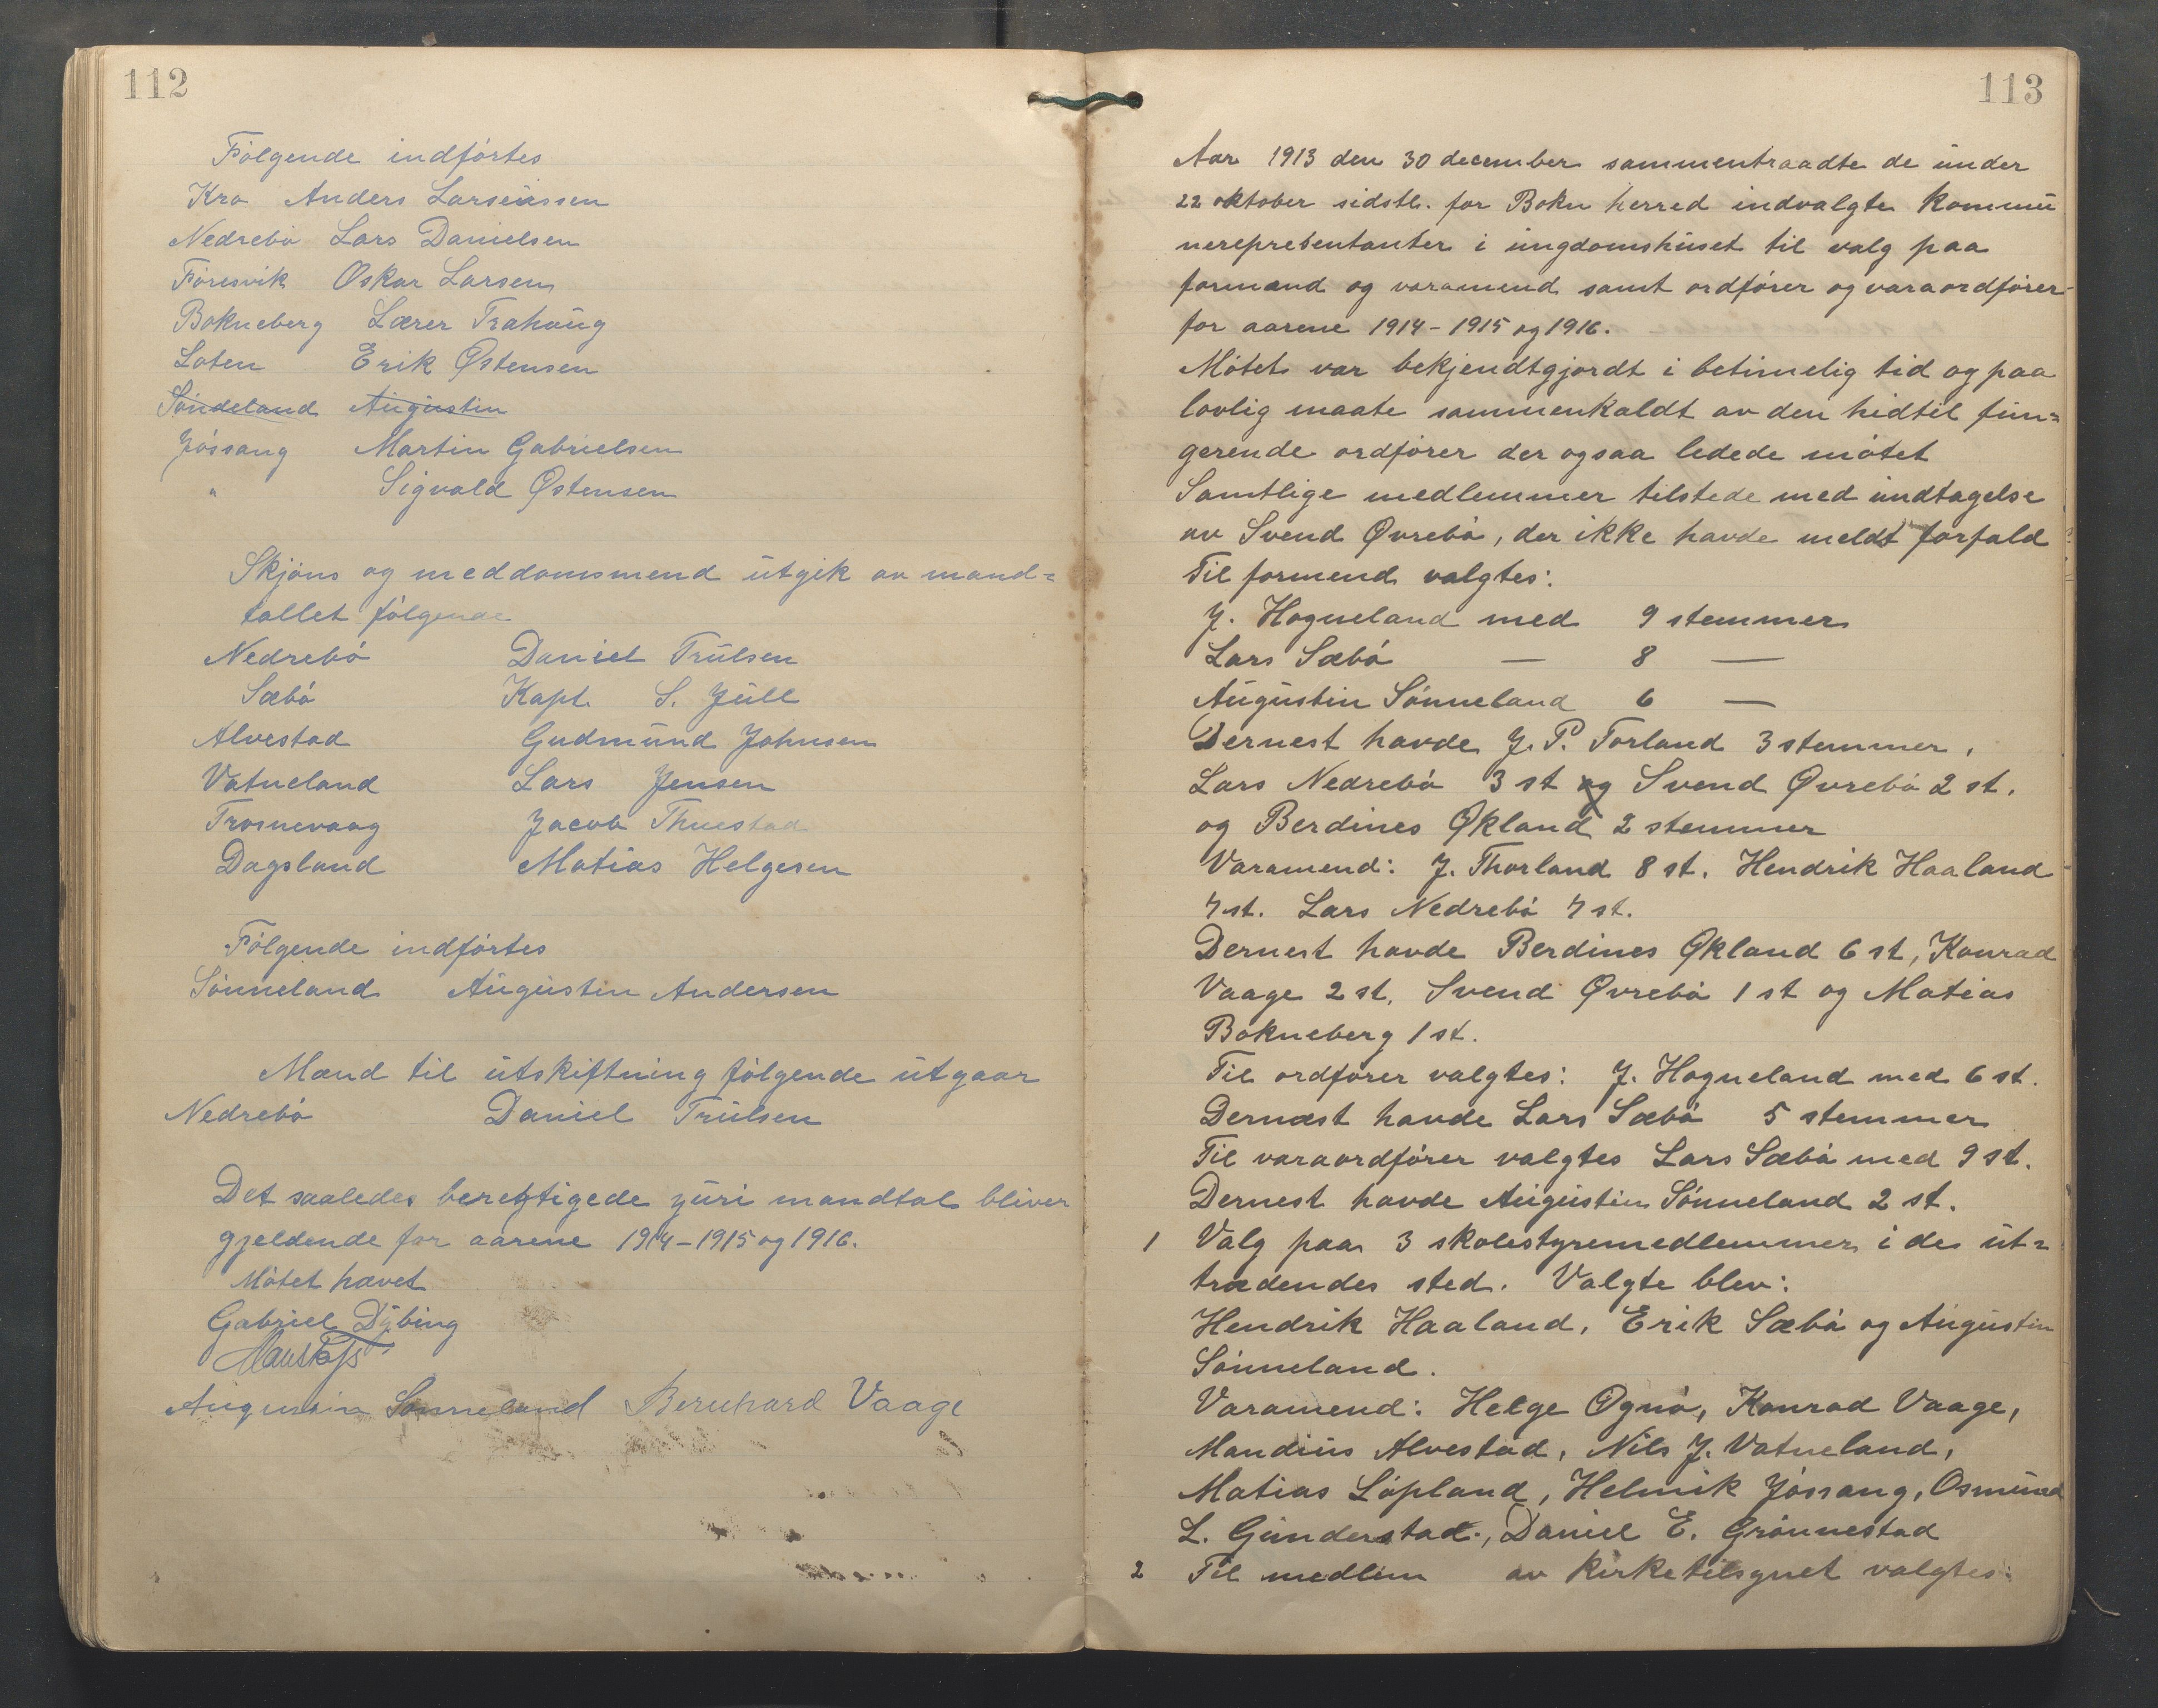 112
Følgende indførtes
Kro Anders Larseussen
Nedrebø Lars Danielsen
Føresvik Oskar Larsen
Bokneberg Lærer Trahaug
Loten Erik Østensen
Søndeland Augustin
Jøssang Martin Gabrielsen
" Sigvald Østensen
Skjøns og meddomsmend utgik av mand=
tallet følgende
Nedrebø Daniel Trulsen
Sæbø Kapt. S. Jull
Alvestad Gudmund Johnsen
Vatneland Lars Jensen
Trosnevaag Jacob Thuestad
Dagsland Matias Helgesen
Følgende indførtes
Sønneland Augustin Andersen
Mænd til utskiftning følgende utgaar
Nedrebø Daniel Trulsen
Det saaledes beregtigede juri mandtal bliver
gjeldende for aarene 1914-1915 og 1916.
Møtet hævet
Gabriel Dybing
Augustin Sønneland Bernhard Vaage
113
Aar 1913 den 30 december sammentraadte de under
22 oktober sidstl. for Bokn herred indvalgte kommu
nerepresentanter i ungdomshuset til valg paa
formænd og varamend samt ordfører og varaordfører
for aarene 1914-1915 og 1916.
Møtet var bekjendtgjordt i betimelig tid og paa
lovlig maate sammenkaldt av den hidtil fun=
gerende ordfører der ogsaa ledede møtet
Samtlige medlemmer tilstede med undtagelse
av Svend Øvrebø, der ikke havde meldt forfald
Til formend valgtes:
J. Hogneland med 9 stemmer
Lars Sæbø — 8 —
Augustin Sønneland 6 —
Dernest havde J. P. Torland 3 stemmer,
Lars Nedrebø 3 st og Svend Øvrebø 2 st.
og Berdines Økland 2 stemmer
Varamend: J. Thorland 8 st. Hendrik Haaland
7 st. Lars Nedrebø 7 st.
Dernest havde Berdines Økland 6 st, Konrad
Vaage 2 st. Svend Øvrebø 1 st og Matias
Bokneberg 1 st.
Til ordfører valgtes: J. Hogneland med 6 st.
Dernæst havde Lars Sæbø 5 stemmer
Til varaordfører valgtes Lars Sæbø med 9 st.
Dernest havde Augustin Sønneland 2 st.
1 Valg paa 3 skolestyremedlemmer i de ut=
trædendes sted. Valgte blev:
Hendrik Haaland, Erik Sæbø og Augustin
Sønneland.
Varamend: Helge Ognø, Konrad Vaage,
Mandius Alvestad, Nils J. Vatneland,
Matias Løpland, Helmik Jøssang, Osmund
L. Gunderstad, Daniel E. Grønnestad
2 Til medlem av kirketilsynet valgtes: